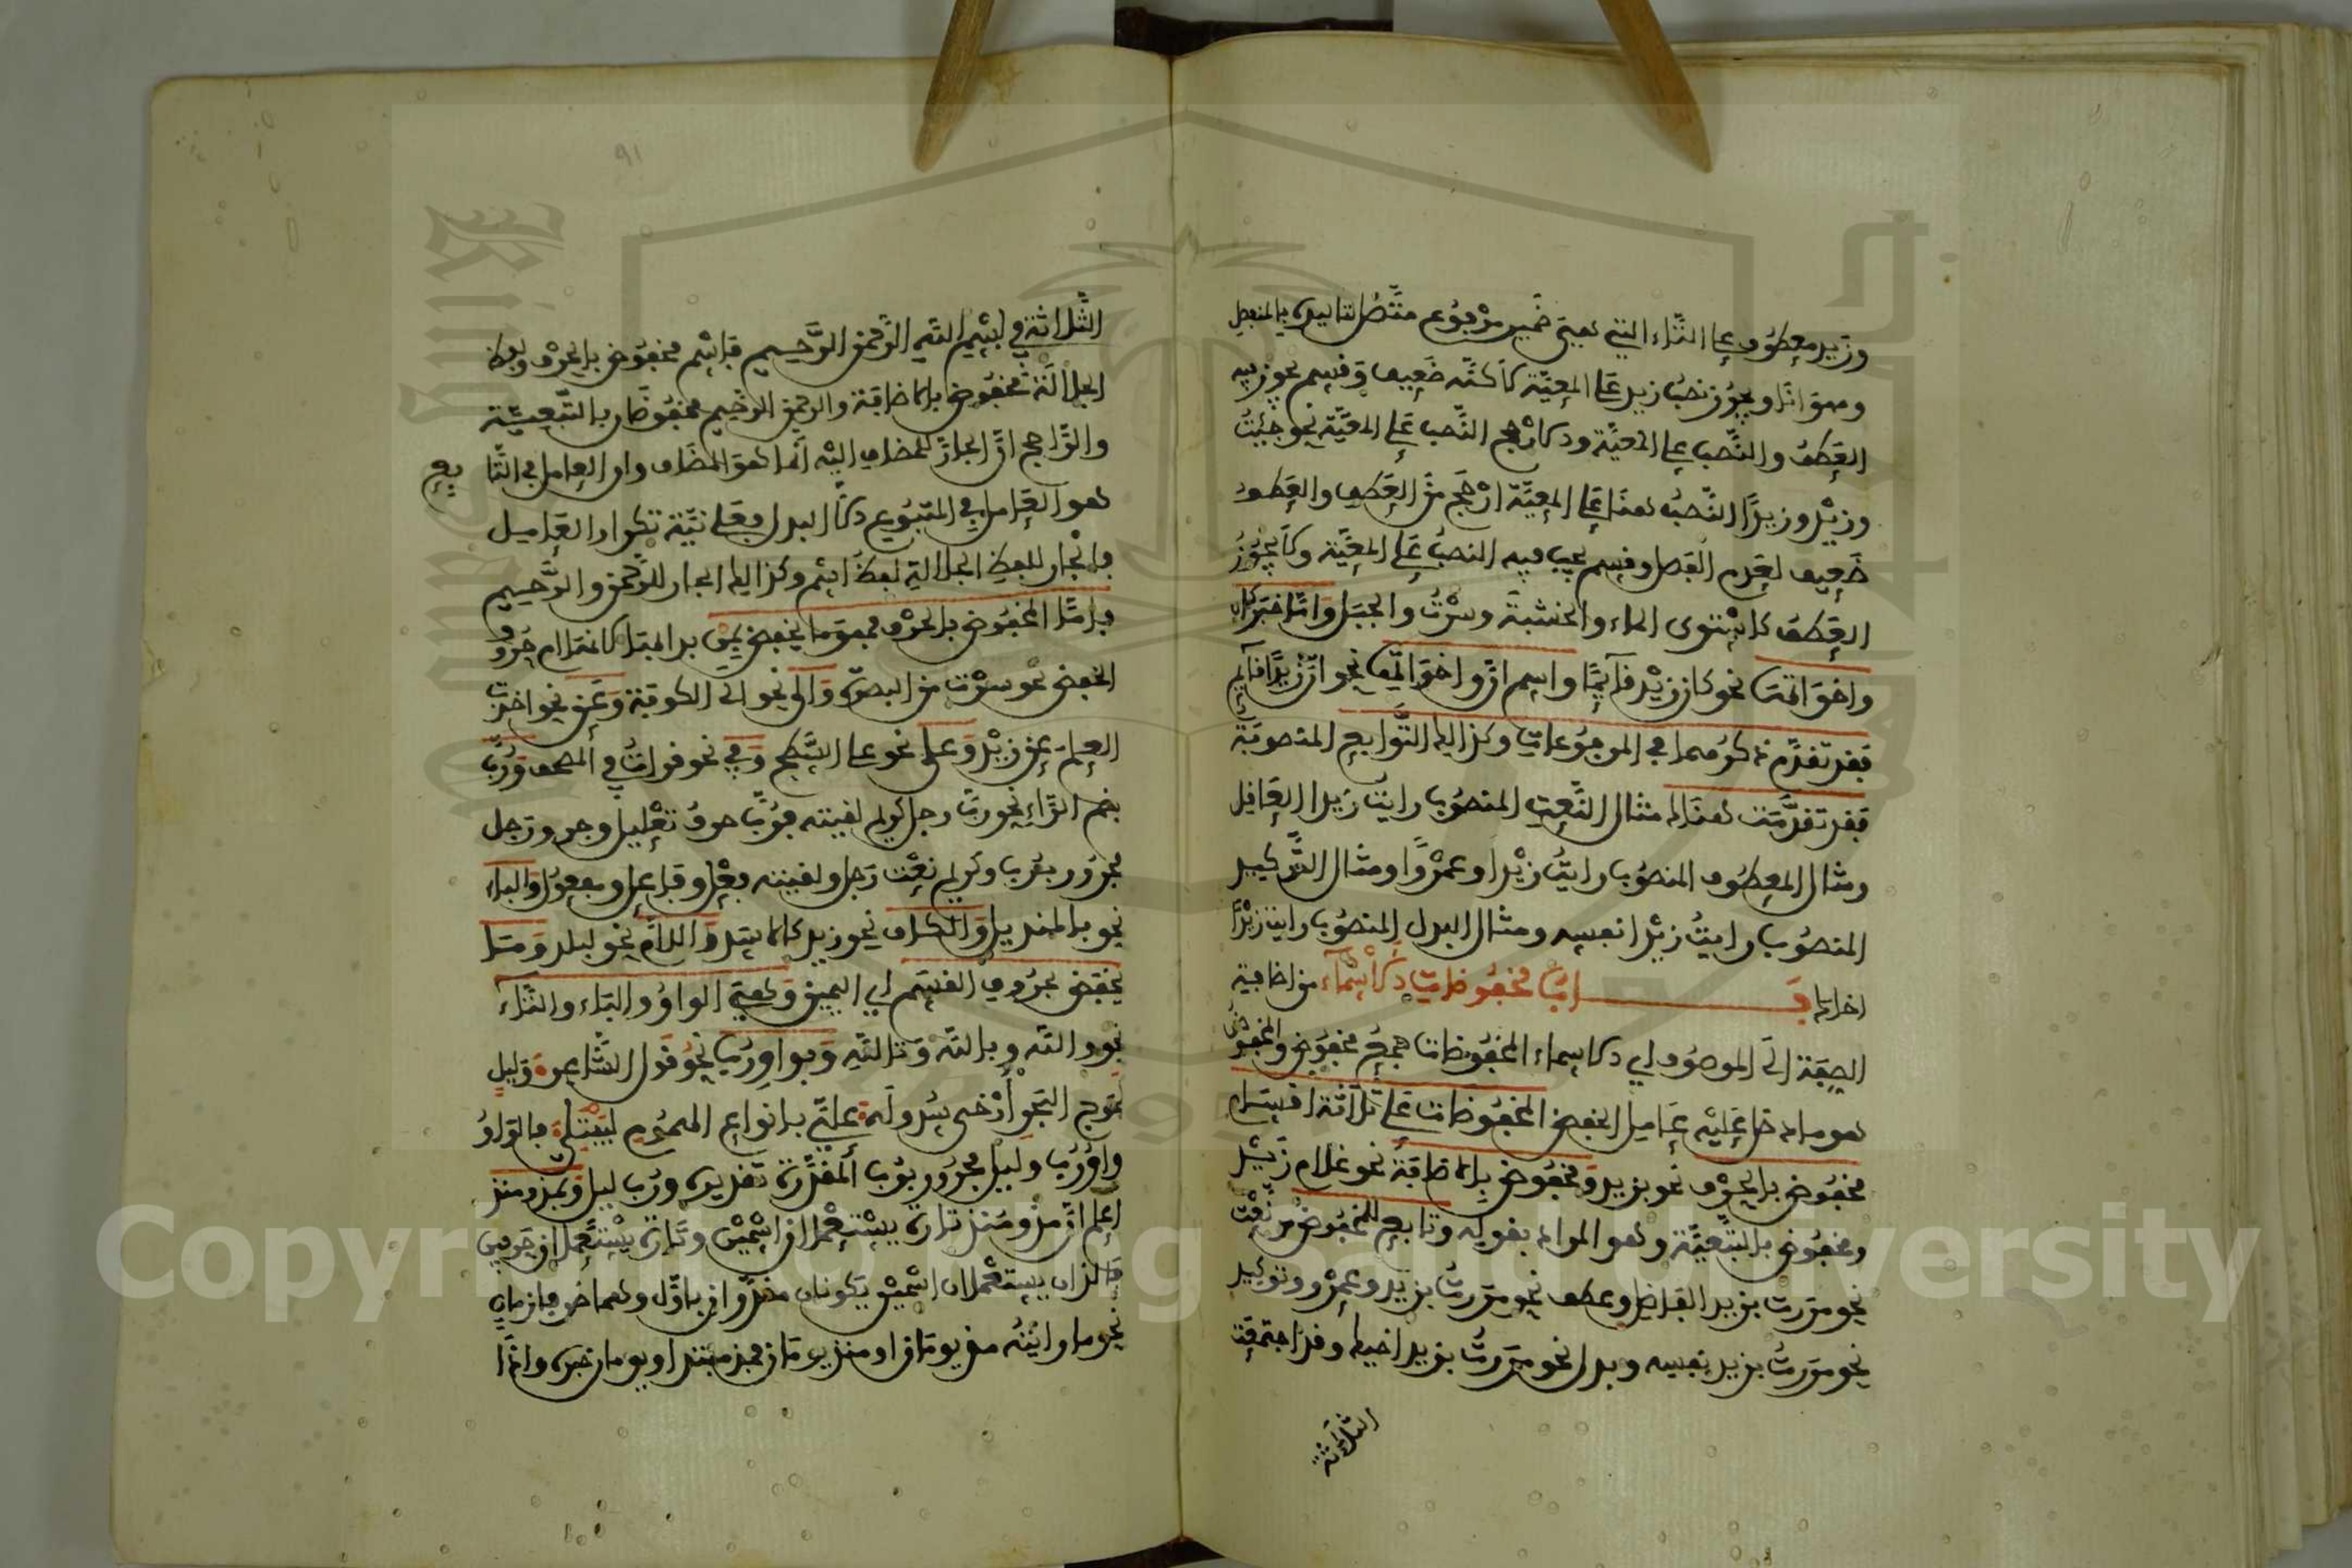 وزيد معطوف على التاء التي هي ضمير مرفوع متصل لتاكيده بالمنفصل
وهو انا ويجوز نصب زيد على المعية لاكنه ضعيف وقسم يجوز فيه
العطف والنصب على المعية ولاكن رجح النصب على المعية نحو جئت
وزيد وزيدا النصب هنا على المعية ارجح من العطف والعطف
ضعيف لعدم الفصل وقسم يجب فيه النصب على المعية ولا يجوز
العطف كاستوى الماء والخشبة وسرت والجبل واما خبر كان
واخواتها نحو كان زيد قائما واسم ان واخواتها نحو ان زيدا قائم
فقد تقدم ذكرهما في المرفوعات وكذالك التوابع المنصوبة
فقد تقدمت هنالك مثال النعت المنصوب رايت زيدا العاقل
ومثال المعطوف المنصوب رايت زيدا وعمرا ومثال التوكيد
المنصوب رايت زيدا نفسه ومثال البدل المنصوب رايت زيدا
اخاك باب مخفوضات الاسماء من اضافة
الصفة الى الموصوف اي الاسماء المخفوضات جمع مخفوض والمخفوض
هو ما دخل عليه عامل الخفض المخفوضات على ثلاثة اقسام
مخفوض بالحرف نحو بزيد ومخفوض بالاضافة نحو غلام زيد
ومخفوض بالتبعية وهو المراد بقوله وتابع للمخفوض من نعت
نحو مررت بزيد الفاضل وعطف نحو مررت بزيد وعمرو وتوكيد
نحو مررت بزيد نفسه وبدل نحو مررت بزيد اخيك وقد اجتمعت
الثلاثة
٩١
الثلاثة في بسم الله الرحمن الرحيم فاسم مخفوض بالحرف ولفظ
الجلالة مخفوض بالاضافة والرحمن الرحيم مخفوضان بالتبعية
والراجح ان الجار للمضاف اليه انما هو المضاف وان العامل في التابع
هو العامل في المتبوع الا البدل فعلى نية تكرار العامل
فالجار للفظ الجلالة لفظ اسم وكذالك الجار للرحمن والرحيم
فاما المخفوض بالحرف فهو ما يخفض بمن بدا بها لانها ام حروف
الخفض نحو سرت من البصرة والى نحو الى الكوفة وعن نحو اخذت
العلم عن زيد وعلى نحو على السطح وفي نحو قرات في المصحف ورب
بضم الراء نحو رب رجل كريم لقيته فرب حرف تقليل وجر ورجل
مجرور برب وكريم نعت رجل ولقيته فعل وفاعل ومفعول والباء
نحو بالمنديل والكاف نحو زيد كالاسد واللام نحو لبلد وما
يخفض بحروف القسم اي اليمين وهي الواو والباء والتاء
نحو والله وبالله وتالله وبواو رب نحو قول الشاعر وليل
كموج البحر ارخى سدوله علي بانواع الهموم ليبتلي فالواو
واو رب وليل مجرور برب المقدرة تقديره ورب ليل وبمذ ومنذ
اعلم ان مذ ومنذ تارة يستعملان اسمين وتارة يستعملان حرفين
فاللذان يستعملان اسمين يكونان مقدران باول وهما ظرفا زمان
نحو ما رايته مذ يومان او منذ يومان فمذ مبتدا ويومان خبره واذا